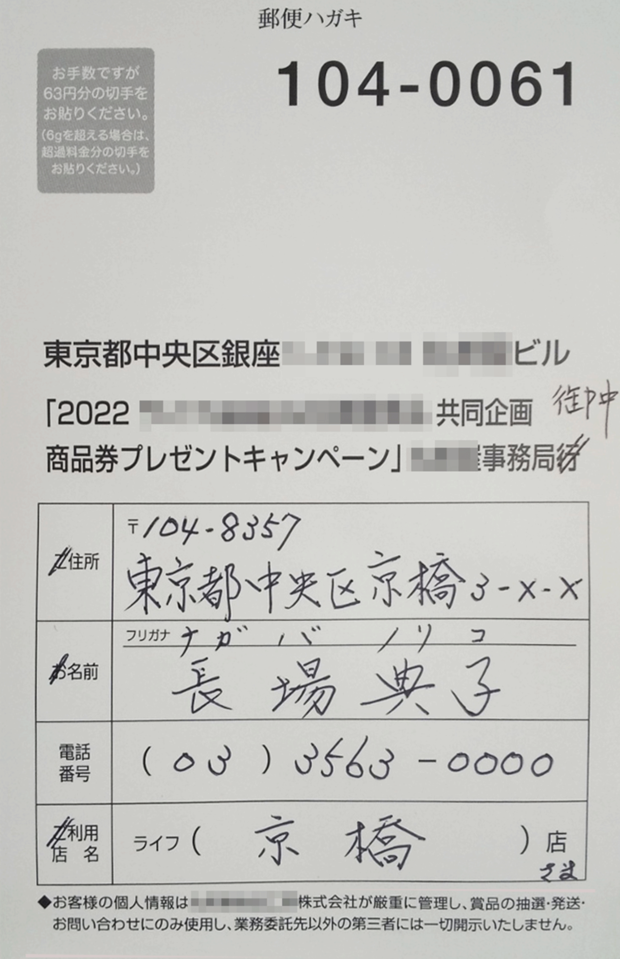 郵便ハガキ
お手数ですが
63円分の切手を
お貼りください。
(6gを超える場合は、
超過料金分の切手を
お貼りください。)
104-0061
東京都中央区銀座 ビル
「2022 共同企画 御中
商品券プレゼントキャンペーン」 事務局行
ご住所
〒104-8357
東京都中央区京橋3-X-X
お名前
フリガナ ナガバ ノリコ
長場典子
電話
番号
(03)3563-0000
ご利用
店名
ライフ(京橋)店
さま
◆お客様の個人情報は 株式会社が厳重に管理し、賞品の抽選・発送・
お問い合わせにのみ使用し、業務委託先以外の第三者には一切開示いたしません。